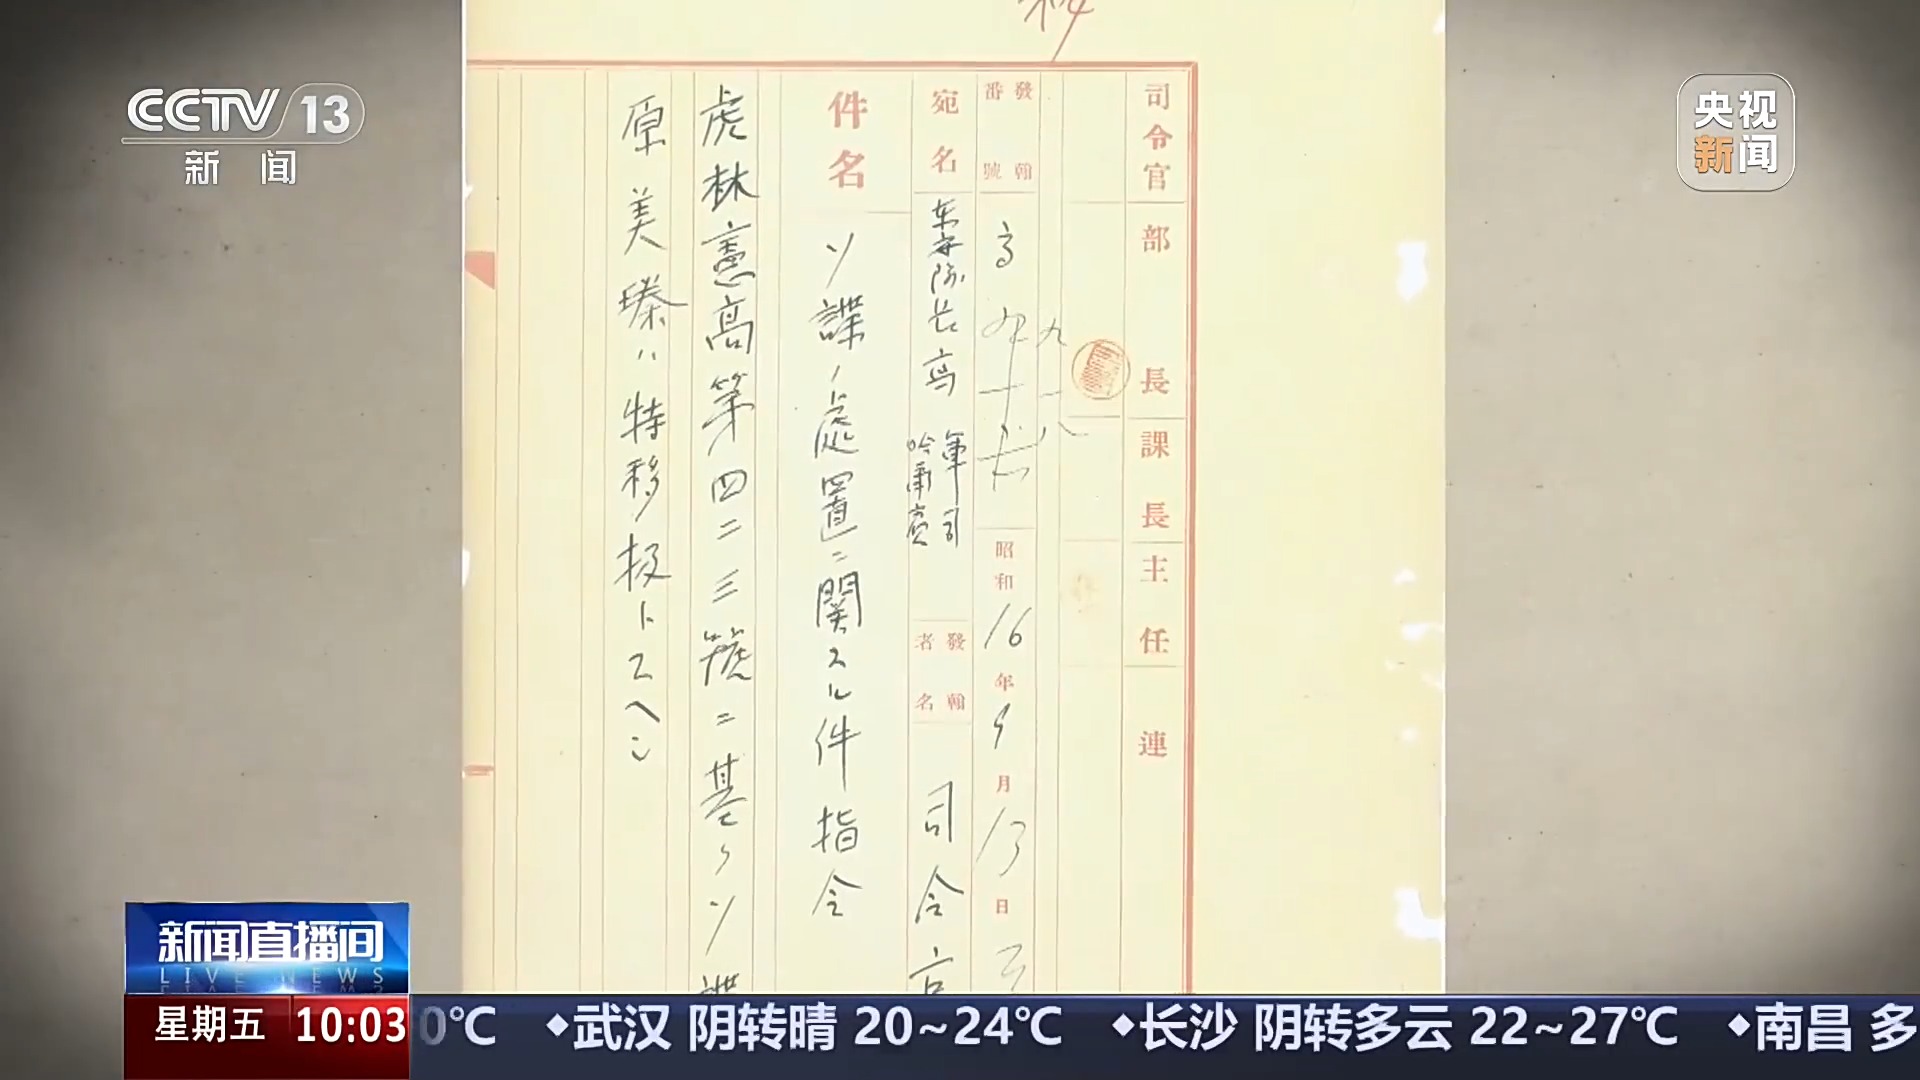 CCTV 13
新闻
央视
新闻
司令官
部長
課長
主任
連
發翰番號
高
昭和16年9月13日
宛名
隊長 高
軍司
哈爾賓
發翰者名
司令官
件名
ソ諜ノ處置ニ関スル件指令
虎林憲高第四二三號ニ基クソ諜
原美臻ハ特移扱トスヘシ
新闻直播间
LIVE NEWS
星期五 10:03
0℃ ◆武汉 阴转晴 20~24℃ ◆长沙 阴转多云 22~27℃ ◆南昌 多